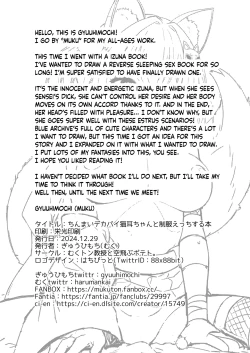 HELLO, THIS IS GYUUHIMOCHI!
I GO BY "MUKU" FOR MY ALL-AGES WORK.
THIS TIME I WENT WITH A IZUNA BOOK!
I'VE WANTED TO DRAW A REVERSE SLEEPING SEX BOOK FOR SO
LONG! I'M SUPER SATISFIED TO HAVE FINALLY DRAWN ONE.
IT'S THE INNOCENT AND ENERGETIC IZUNA, BUT WHEN SHE SEES
SENSEI'S DICK, SHE CAN'T CONTROL HER DESIRE AND HER BODY
MOVES ON ITS OWN ACCORD THANKS TO IT. AND IN THE END,
HER HEAD'S FILLED WITH PLEASURE... I DON'T KNOW WHY, BUT
SHE GOES SUPER WELL WITH THESE ESTRUS SCENARIOS!
BLUE ARCHIVE'S FULL OF CUTE CHARACTERS AND THERE'S A LOT
I WANT TO DRAW, BUT THIS TIME I GOT AN IDEA FOR THIS
STORY AND I EXPANDED ON IT WITH WHAT I WANTED TO DRAW.
I PUT LOTS OF MY FANTASIES INTO THIS, YOU SEE.
I HOPE YOU LIKED READING IT!
I HAVEN'T DECIDED WHAT BOOK I'LL DO NEXT, BUT I'LL TAKE
MY TIME TO THINK IT THROUGH!
WELL THEN, UNTIL THE NEXT TIME WE MEET!
GYUUHIMOCHI (MUKU)
タイトル:ちんまいデカパイ狐耳ちゃんと制服えっちする本
印刷:栄光印刷
発行日:2024.12.29
発行者:ぎゅうひもち(むく)
サークル:むくトン教授と空飛ぶポテト。
ロゴデザイン:はちびっと(TwitterID:88x88bit)
ぎゅうひもちtwittr:gyuuhimochi
むくtwittr:harumankai
FANBOX:https://mukuton.fanbox.cc/
Fantia:https://fantia.jp/fanclubs/29997
ci-en:https://ci-en.dlsite.com/creator/15749